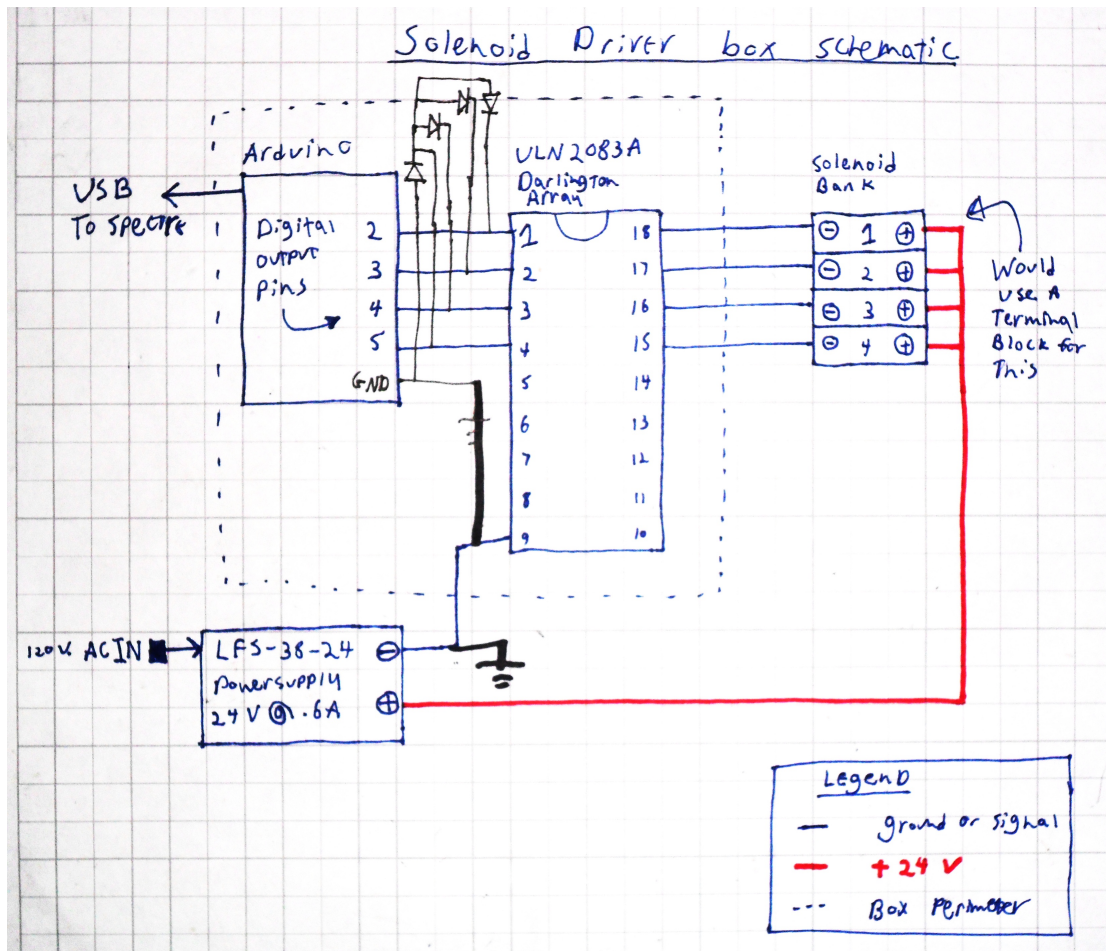 Solenoid Driver box schematic
Arduino
USB
To Spectre
Digital
output
pins
2
3
4
5
GND
ULN2083A
Darlington
Array
1
2
3
4
5
6
7
8
9
18
17
16
15
14
13
12
11
10
Solenoid
Bank
⊖ 1 ⊕
⊖ 2 ⊕
⊖ 3 ⊕
⊖ 4 ⊕
Would
use A
Terminal
Block for
This
120V AC IN
LFS-38-24 ⊖
Powersupply
24V @ .6A ⊕
Legend
ground or signal
+24 V
Box Perimeter